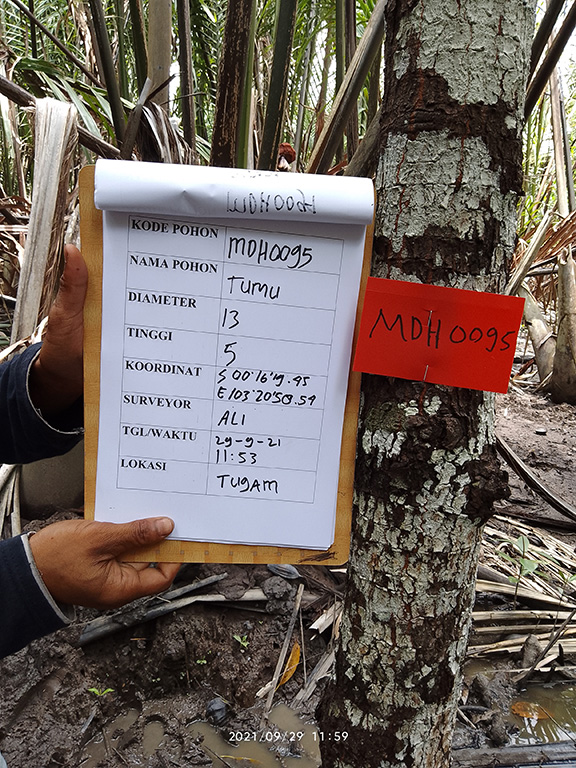 KODE POHON MDH0095
NAMA POHON Tumu
DIAMETER 13
TINGGI 5
KOORDINAT S 00°16'19.45
E 103°20'50.59
SURVEYOR ALI
TGL/WAKTU 29-9-21
11:53
LOKASI TUGAM
MDH0095
2021/09/29 11:59